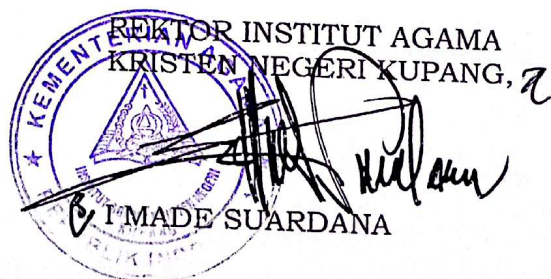 REKTOR INSTITUT AGAMA
KRISTEN NEGERI KUPANG,
KEMENTERIAN
I MADE SUARDANA